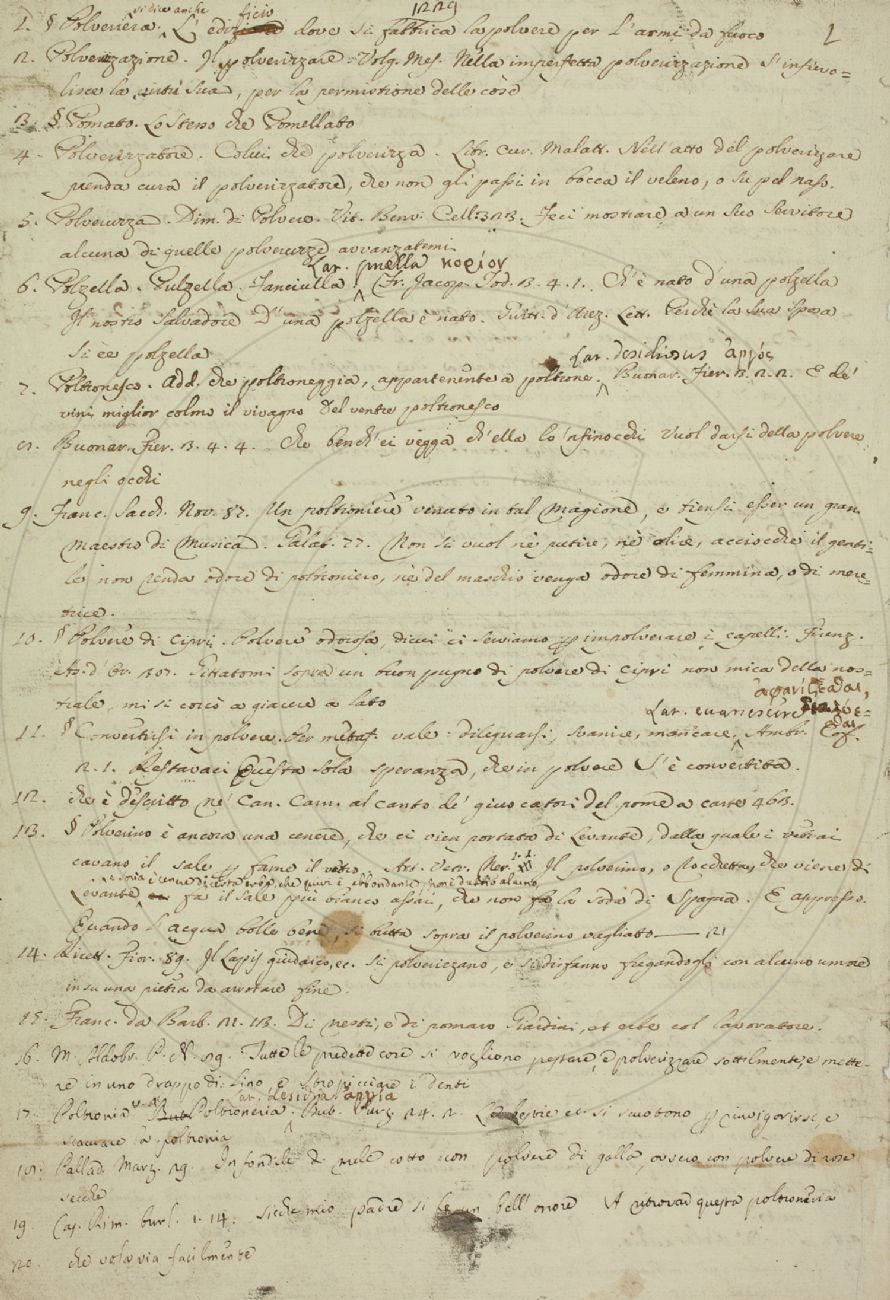 1229
si dice anche
ficio
1. § Polveriera. L'edi dove si fabbrica la polvere per l'armi da fuoco
1
2. Polverizzazione. Il polverizzare. Volg. Mes. Nella imperfetta polverizzazione s'infievo=
lisce la virtù sua, per la permistione delle cose
3. §. Pomato. Lo stesso che Pomellato
4. Polverizzatore. Colui che polverizza. Libr. cur. Malatt. Nell'atto del polverizzare
prenda cura il polverizzatore, che non gli passi in bocca il veleno, o su pel naso.
5. Polveruzza. Dim. di Polvere. Vit. Benv. Cell. Feci mostrare a un suo servitore
alcuna di quelle polveruzze avvanzatemi
Lat. puella κορίον
6. Polzella. Pulzella. Fanciulla. Fr. Jacop. Tod. 3. 4. 1. Ch'è nato d'una polzella
Il nostro Salvadore D'una polzella è nato. Guitt. d'Arez. Lett. Perchè la sua sposa
si è polzella
Lat. desidiosus ἀργός
7. Poltronesco. Add. che poltroneggia, appartenente a poltrone. Buonar. Fier. 3. 2. 2. E de'
vini miglior colmo il vivagno Del ventre poltronesco
8. Buonar. Fier. 3. 4. 4. Che bench'ei vegga ch'ella lo'nfinocchi Vuol darsi della polvere
negli occhi
9. Franc. Sacch. Nov. 87. Un poltroniere venuto in tal magione, e tiensi esser un gran
maestro di Musica. Galat. 77. Non si vuol nè putire, nè olire, acciocchè il genti=
le non renda odore di poltroniero, nè del maschio venga odore di femmina, o di mere=
trice.
10. § Polvere di Cipri. Polvere odorosa, di cui ci serviamo p impolverare i capelli. Firenz.
As. d'Or. 307. Gittatomi sopra un buon pugno di polvere di Cipri non mica della nos=
trale, mi si corcò a giacere a lato
Lat. evanescere
11. § Convertirsi in polvere. Per metaf. vale dileguarsi, svanire, mancare. Ambr. Cof.
2. 1. Restavaci questa sola speranza, che in polvere S'è convertita.
12. che è descritto ne' Can. Carn. al canto de' giuocatori del pome a carte 463.
13. § Polverino è ancora una cenere, che ci vien portata di Levante, dalla quale i vetrai
cavano il sale p farne il vetro. Art. Vetr. Ner. 1. 1. Il polverino, o rocchetta, che viene di
Levante, fa il sale più bianco assai, che non fa la soda di Spagna. E appresso.
Quando l'acqua bolle bene, si butta sopra il polverino vagliato
14. Ricett. Fior. 89. Il Lapis giudaico, ec. si polverizzano, e si disfanno fregandogli con alcuno umore
in su una pietra da arrotare fine.
15. Franc. da Barb. Di nesti, e di pomaro Giardini, et erbe col lavoratore.
16. M. Aldobr. P. N. 29. Tutte le predette cose si vogliono pestare, e polverizzare sottilmente, e mette=
re in uno drappo di Lino, e stropicciare i denti
Lat. desidia ἀργία
17. Poltronia v. a. Poltroneria. But. Purg. 24. 2. Le bestie ec. si scuotono p rinvigorirsi, e
scacciare la poltronia
18. Pallad. Marz. 29. Infondile di mele cotto con polvere di galla, ovvero con polvere di rose
secche
19. Cas. Rim. burl. 1. 14. Sicchè mio padre si fe un bell'onore A ritrovar questa poltroneria
20. che vola via facilmente